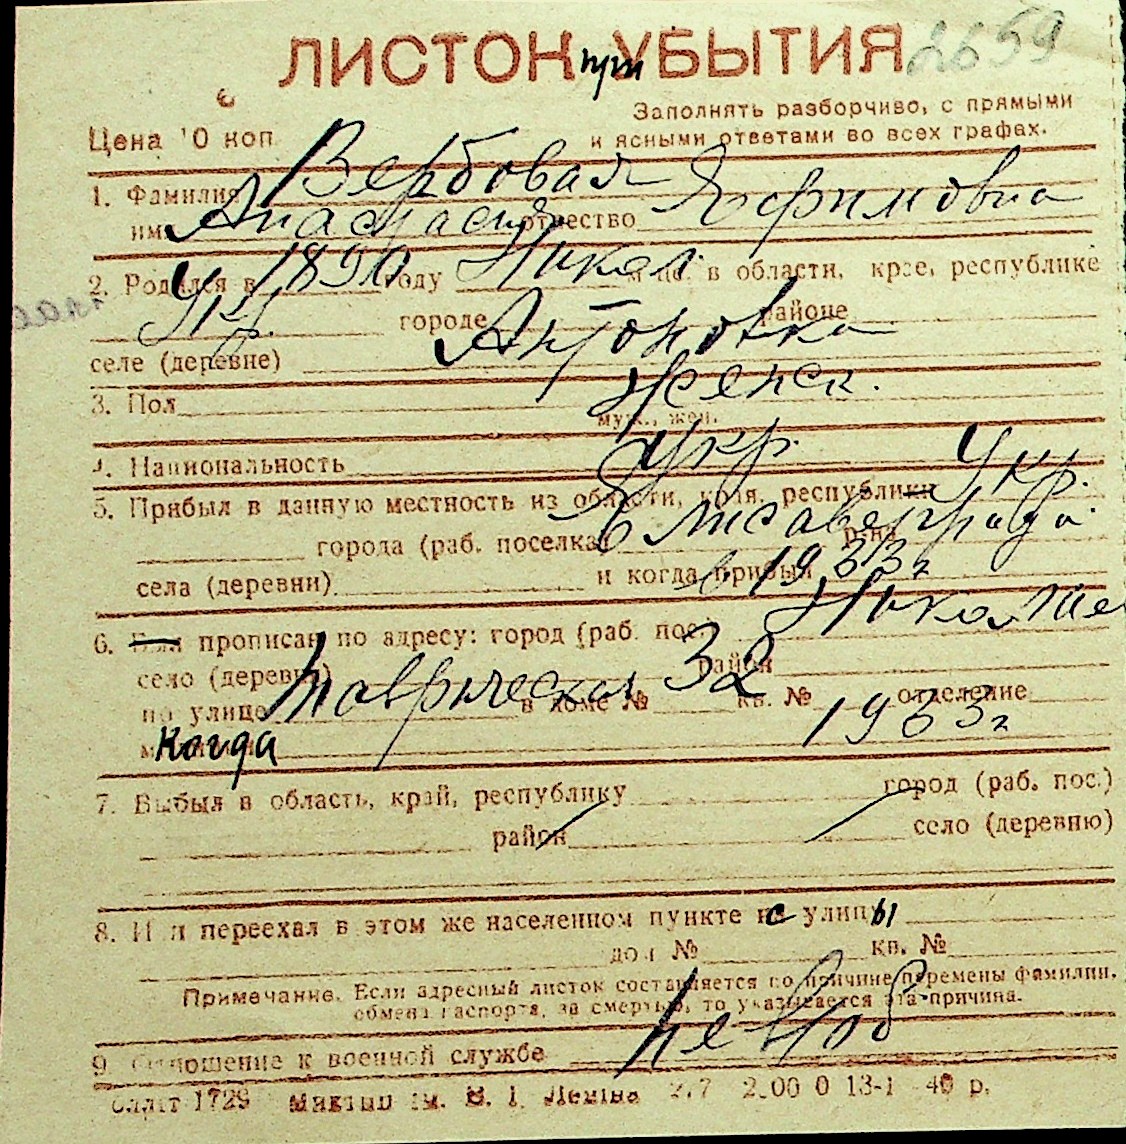 ЛИСТОК УБЫТИЯ 2659
при
Цена 10 коп
Заполнять разборчиво, с прямыми
и ясными ответами во всех графах.
1. Фамилия Вербовая
имя Анастасия отчество Ефимовна
2. Родился в 1890 году Никол. в области, крае, республике
Укр. городе районе
селе (деревне) Антоновка
3. Пол женск.
муж., жен.
4. Национальность укр
5. Прибыл в данную местность из области, края, республики Укр.
города (раб. поселка) Елисаветграда р-на
села (деревни) и когда прибыл в 1933 г
6. Был прописан по адресу: город (раб. пос. Николаев
село (деревня) район
по улице Таврическая 32 в доме № кв. № отделение
милиции когда 1933 г
7. Выбыл в область, край, республику город (раб. пос.)
район село (деревню)
8. Или переехал в этом же населенном пункте с улицы
дом № кв. №
Примечание. Если адресный листок составляется по причине перемены фамилии,
обмена паспорта, за смертью, то указывается эта причина.
9. Отношение к военной службе невоб
1729 ім. В. І. Леніна 2.00 0 13-1 40 р.